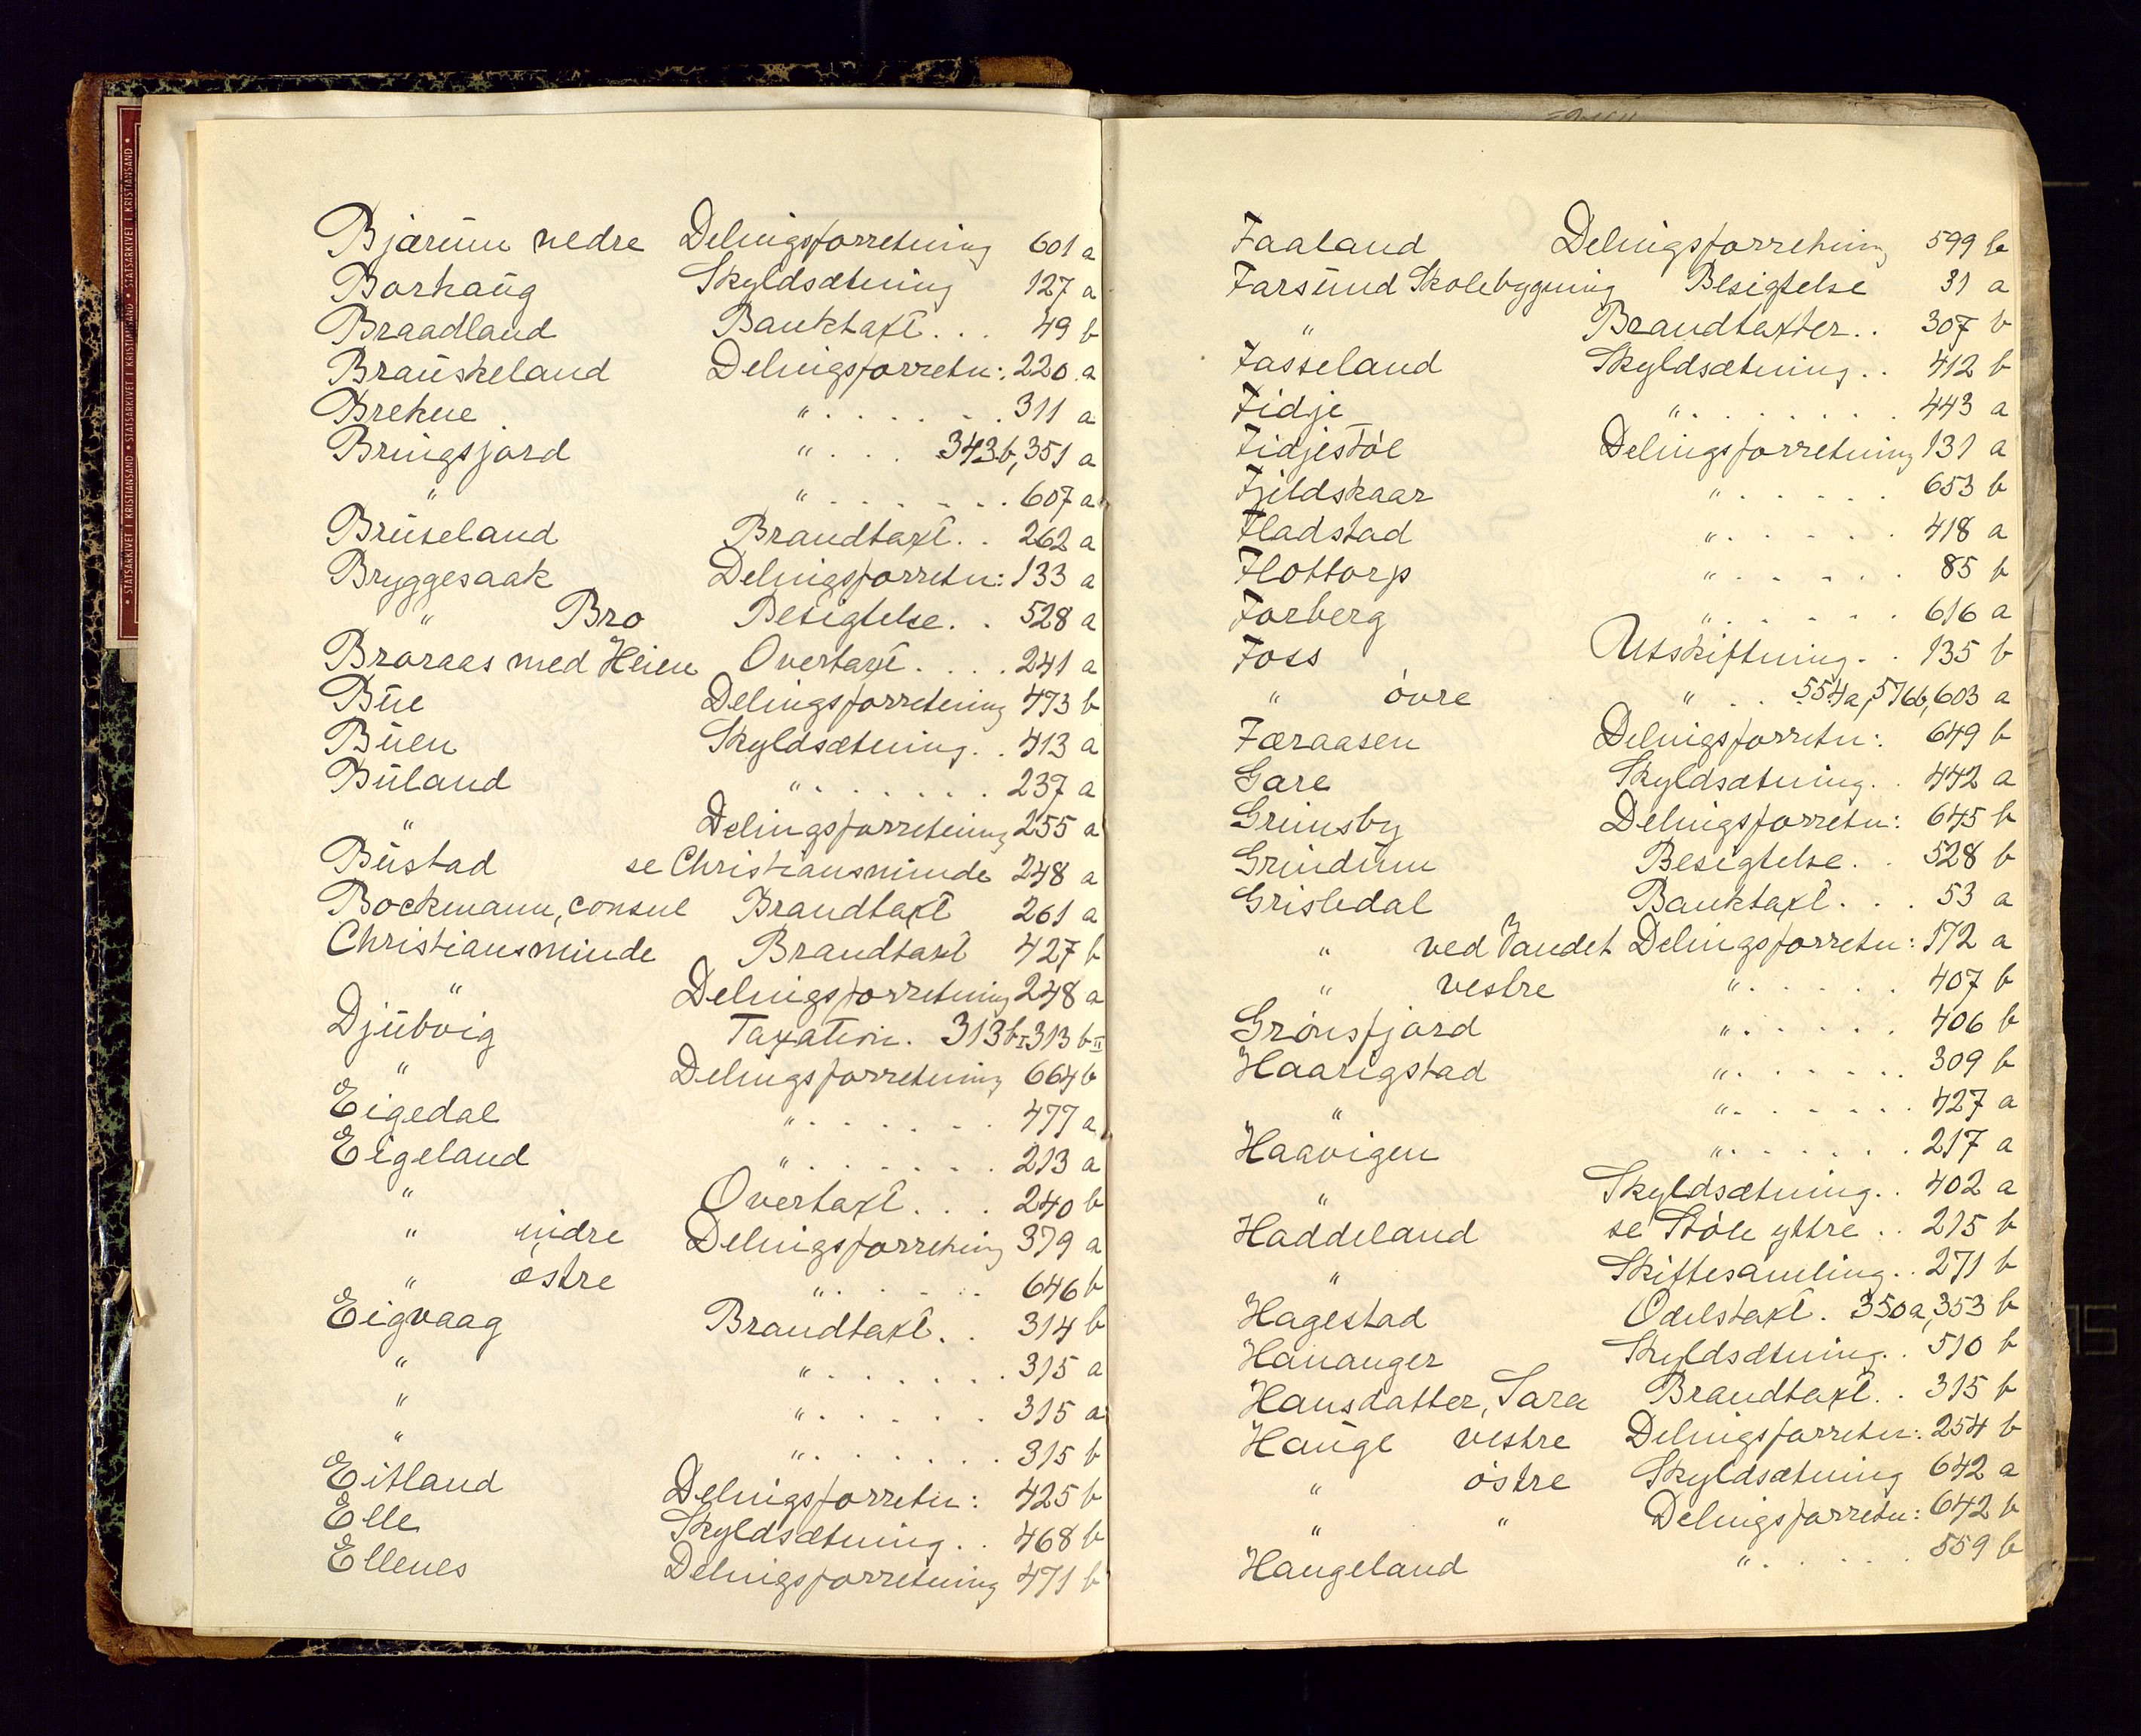 STATSARKIVET I KRISTIANSAND • STATSARKIVET I KRISTIANSAND • STATSARKIVET I KRISTIANSAND
Bjærum nedre Delingsforretning 601 a
Borhaŭg Skyldsætning 127 a
Braadland Banktaxt . . . 49 b
Braŭskeland Delingsforretn: 220 a
Brekne " . . . . . . . 311 a
Bringsjord " . . . 343b, 351 a
" " . . . . . . . 607 a
Brŭseland Brandtaxt . . 262 a
Bryggesaak Delingsforretn: 133 a
" Bro Besigtelse . . 528 a
Broraas med Heien Overtaxt . . . . 241 a
Bŭe Delingsforretning 473 b
Bŭen Skyldsætning . . 413 a
Bŭland " . . . . . . . 237 a
" Delingsforretning 255 a
Bŭstad se Christiansminde 248 a
Bockmann, consul Brandtaxt 261 a
Christiansminde Brandtaxt 427 b
" Delingsforretning 248 a
Djŭbvig Taxation. 313 b I 313 b II
" Delingsforretning 664 b
Eigedal " . . . . . . . 477 a
Eigeland " . . . . . . . 213 a
" Overtaxt . . . 240 b
" midre Delingsforretning 379 a
" østre " . . . . . . 646 b
Eigvaag Brandtaxt . . 314 b
" " . . . . . . . 315 a
" " . . . . . . 315 a
" " . . . . . . . 315 b
Eitland Delingsforretn: 425 b
Elle Skyldsætning . . 468 b
Ellenes Delingsforretning 471 b
Faaland Delingsforretning 599 b
Farsŭnd Skolebygning Besigtelse 31 a
" Brandtaxter . . 307 b
Fasseland Skyldsætning . . 412 b
Fidje " . . . . . . . 443 a
Fidjestöl Delingsforretning 131 a
Fjeldskaar " . . . . . . 653 b
Fladstad " . . . . . . 418 a
Flottorp " . . . . . . 85 b
Forberg " . . . . . . 616 a
Foss Utskiftning . . 135 b
" övre " . . 554a, 576b, 603 a
Færaasen Delingsforretn: 649 b
Gare Skyldsætning . . 442 a
Grimsby Delingsforretn: 645 b
Grindŭm Besigtelse . . 528 b
Grisledal Banktaxt . . . 53 a
" ved Vandet Delingsforretn: 172 a
" vestre " . . . . . 407 b
Grönsfjord " . . . . . 406 b
Haarigstad " . . . . . . 309 b
" " . . . . . . 427 a
Haavigen " . . . . . . 217 a
" Skyldsætning . . 402 a
Haddeland se Stöle yttre . . 215 b
" Skiftesamling . . 271 b
Hagestad Odelstaxt . 350a, 353 b
Hananger Skyldsætning . . 510 b
Hansdatter, Sara Brandtaxt . . 315 b
Haŭge vestre Delingsforretn: 254 b
" östre Skyldsætning 642 a
" " Delingsforretn: 642 b
Haugeland " . . . . . . 559 b